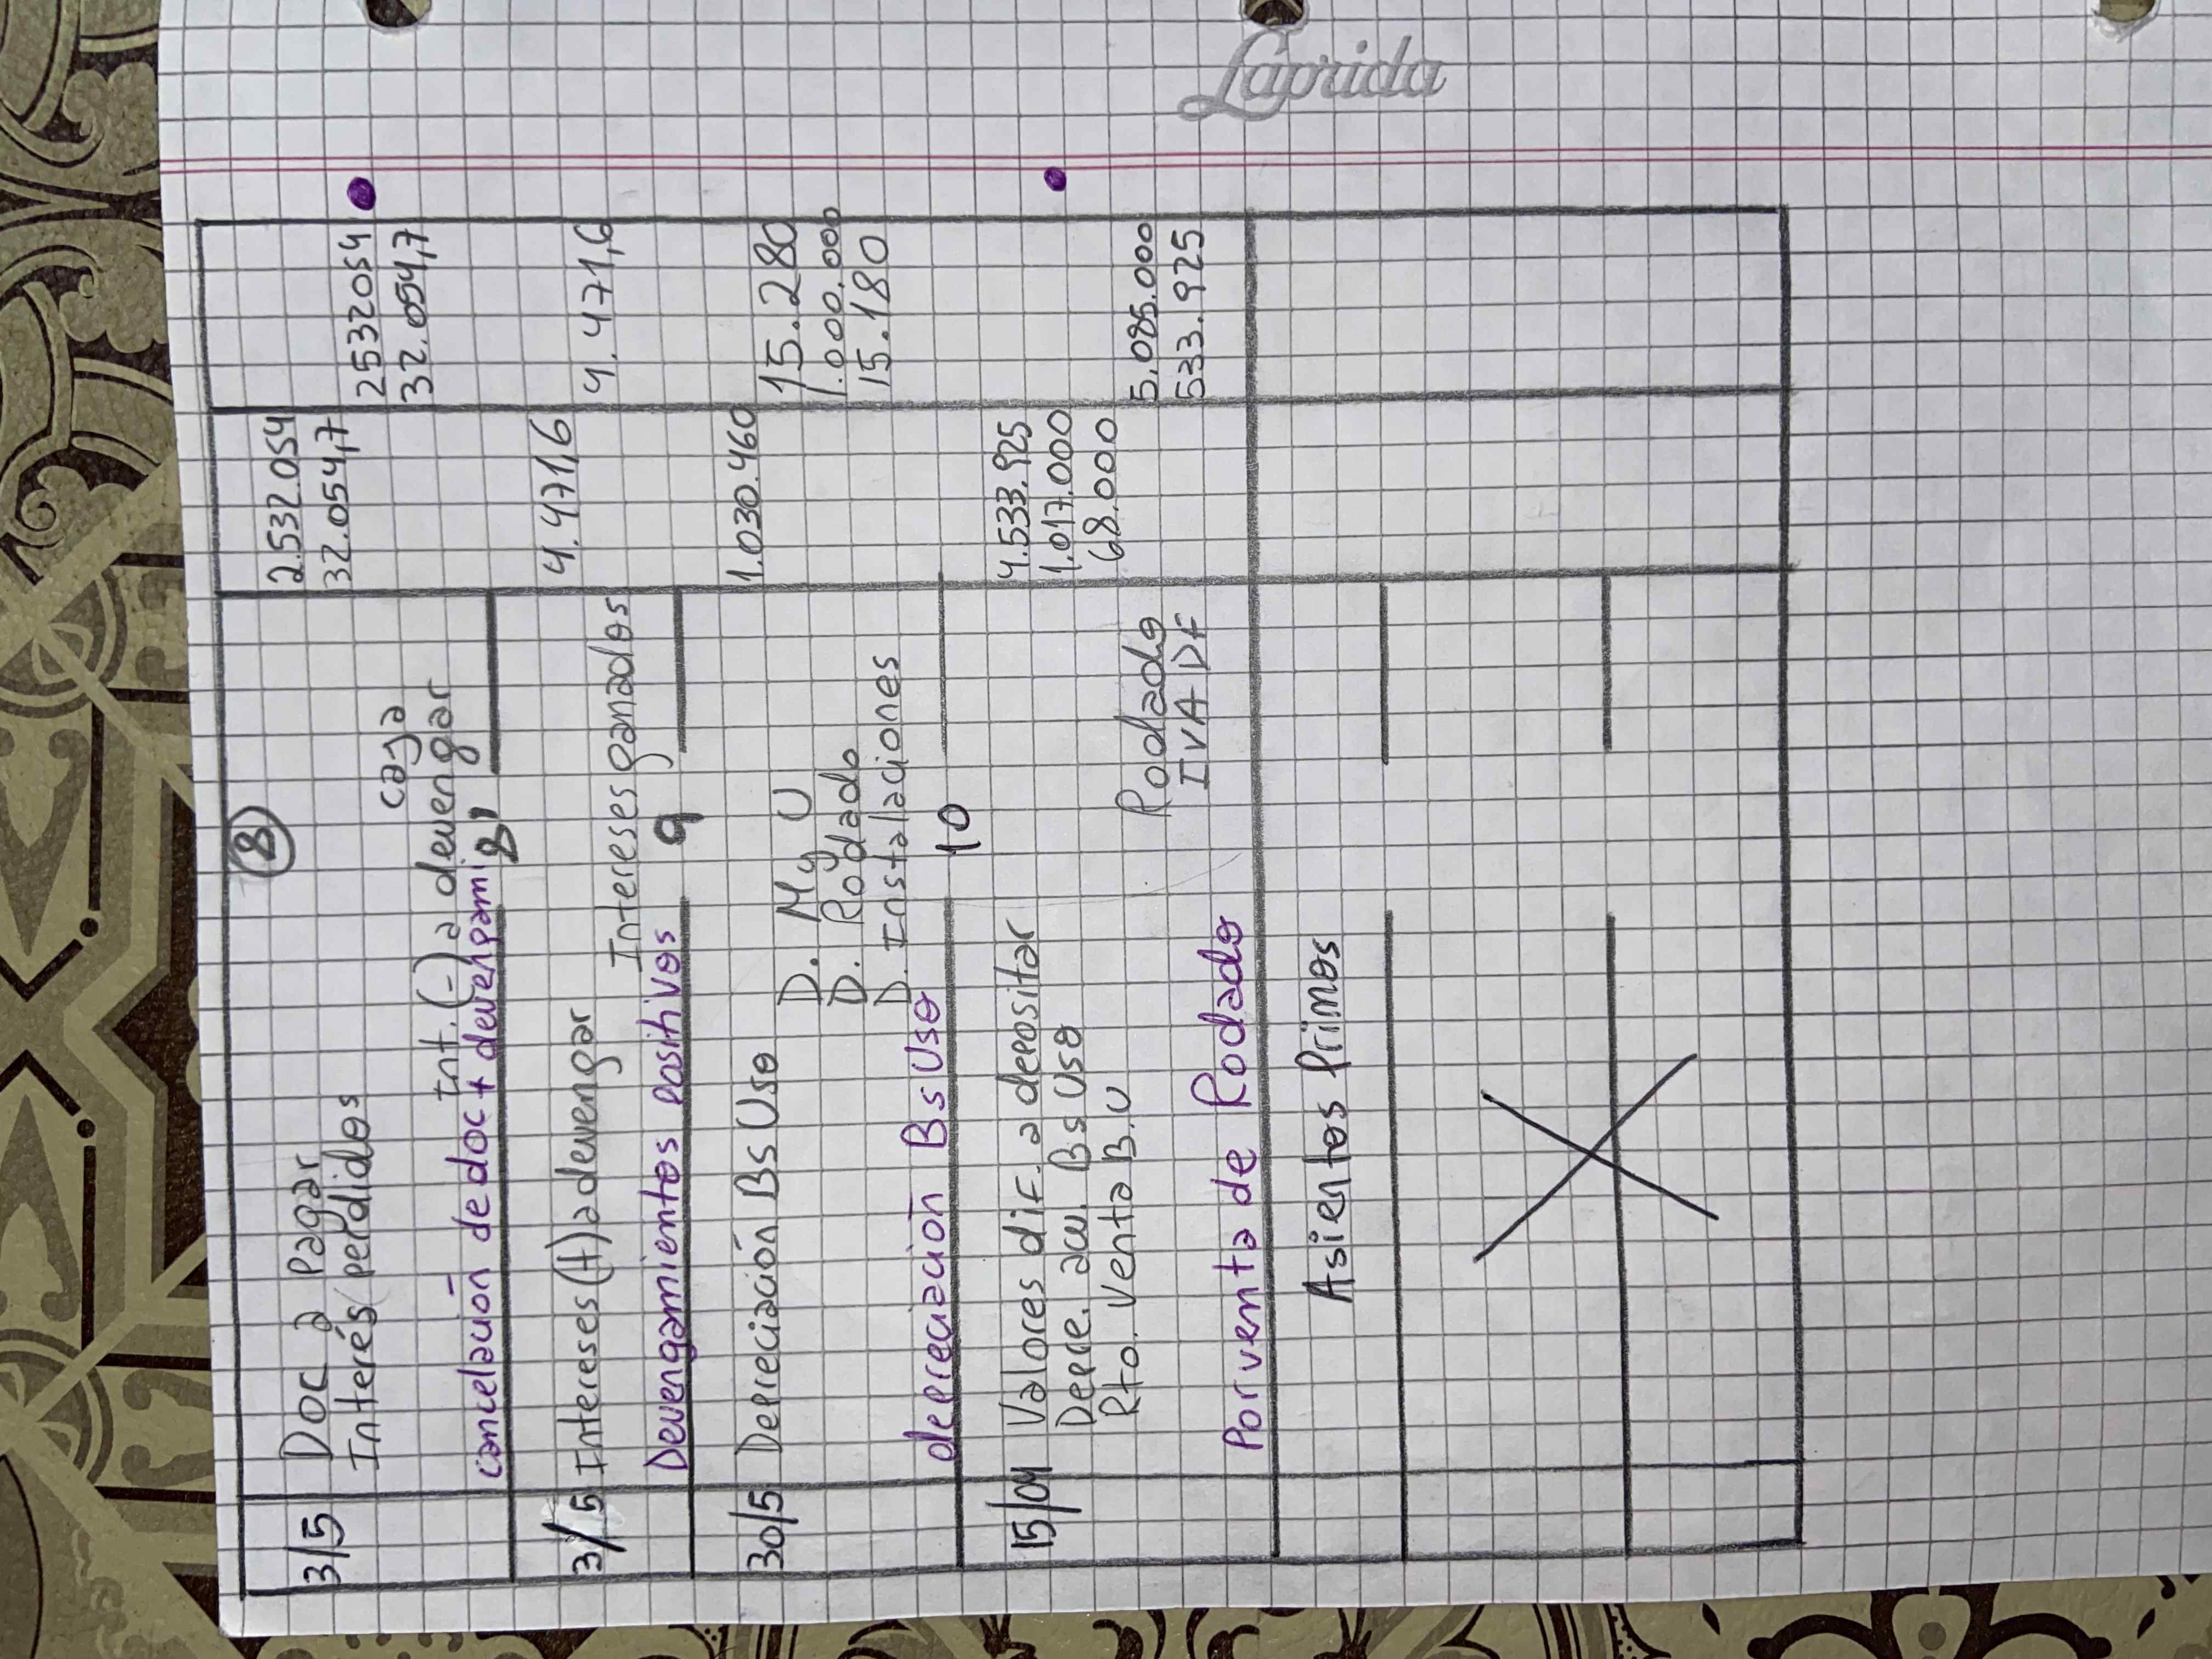 Laprida
8
3/5 Doc a Pagar 2.532.054
Interés perdidos 32.054,7
caja 2532054
Int. (-) a devengar 32.054,7
cancelación de doc + devengami 8'
3/5 Intereses (+) a devengar 4.471,6
Intereses ganados 4.471,6
Devengamientos positivos 9
30/5 Depreciación Bs Uso 1.030.460
D. M y U 15.280
D. Rodado 1.000.000
D. Instalaciones 15.180
depreciación Bs Uso 10
15/04 Valores dif. a depositar 4.533.925
Depre. acu. Bs Uso 1.017.000
Rto. Venta B.U 68.000
Rodado 5.085.000
IVA DF 533.925
Por venta de Rodado
Asientos Primos